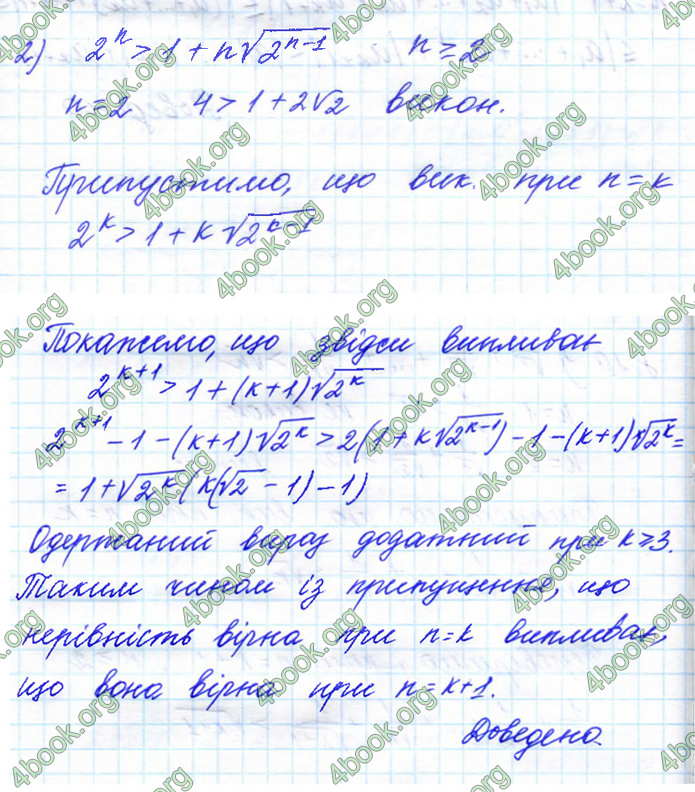 2) 2ⁿ > 1 + n√(2ⁿ⁻¹) n ≥ 2
n = 2 4 > 1 + 2√2 викон.
Припустимо, що вик. при n = k
2ᵏ > 1 + k√(2ᵏ⁻¹)
Покажемо, що звідси випливає
2ᵏ⁺¹ > 1 + (k+1)√(2ᵏ)
2ᵏ⁺¹ - 1 - (k+1)√(2ᵏ) > 2(1 + k√(2ᵏ⁻¹)) - 1 - (k+1)√(2ᵏ) =
= 1 + √(2ᵏ)(k(√2 - 1) - 1)
Одержаний вираз додатний при k ≥ 3.
Таким чином із припущення, що
нерівність вірна при n = k випливає,
що вона вірна при n = k+1.
Доведено.